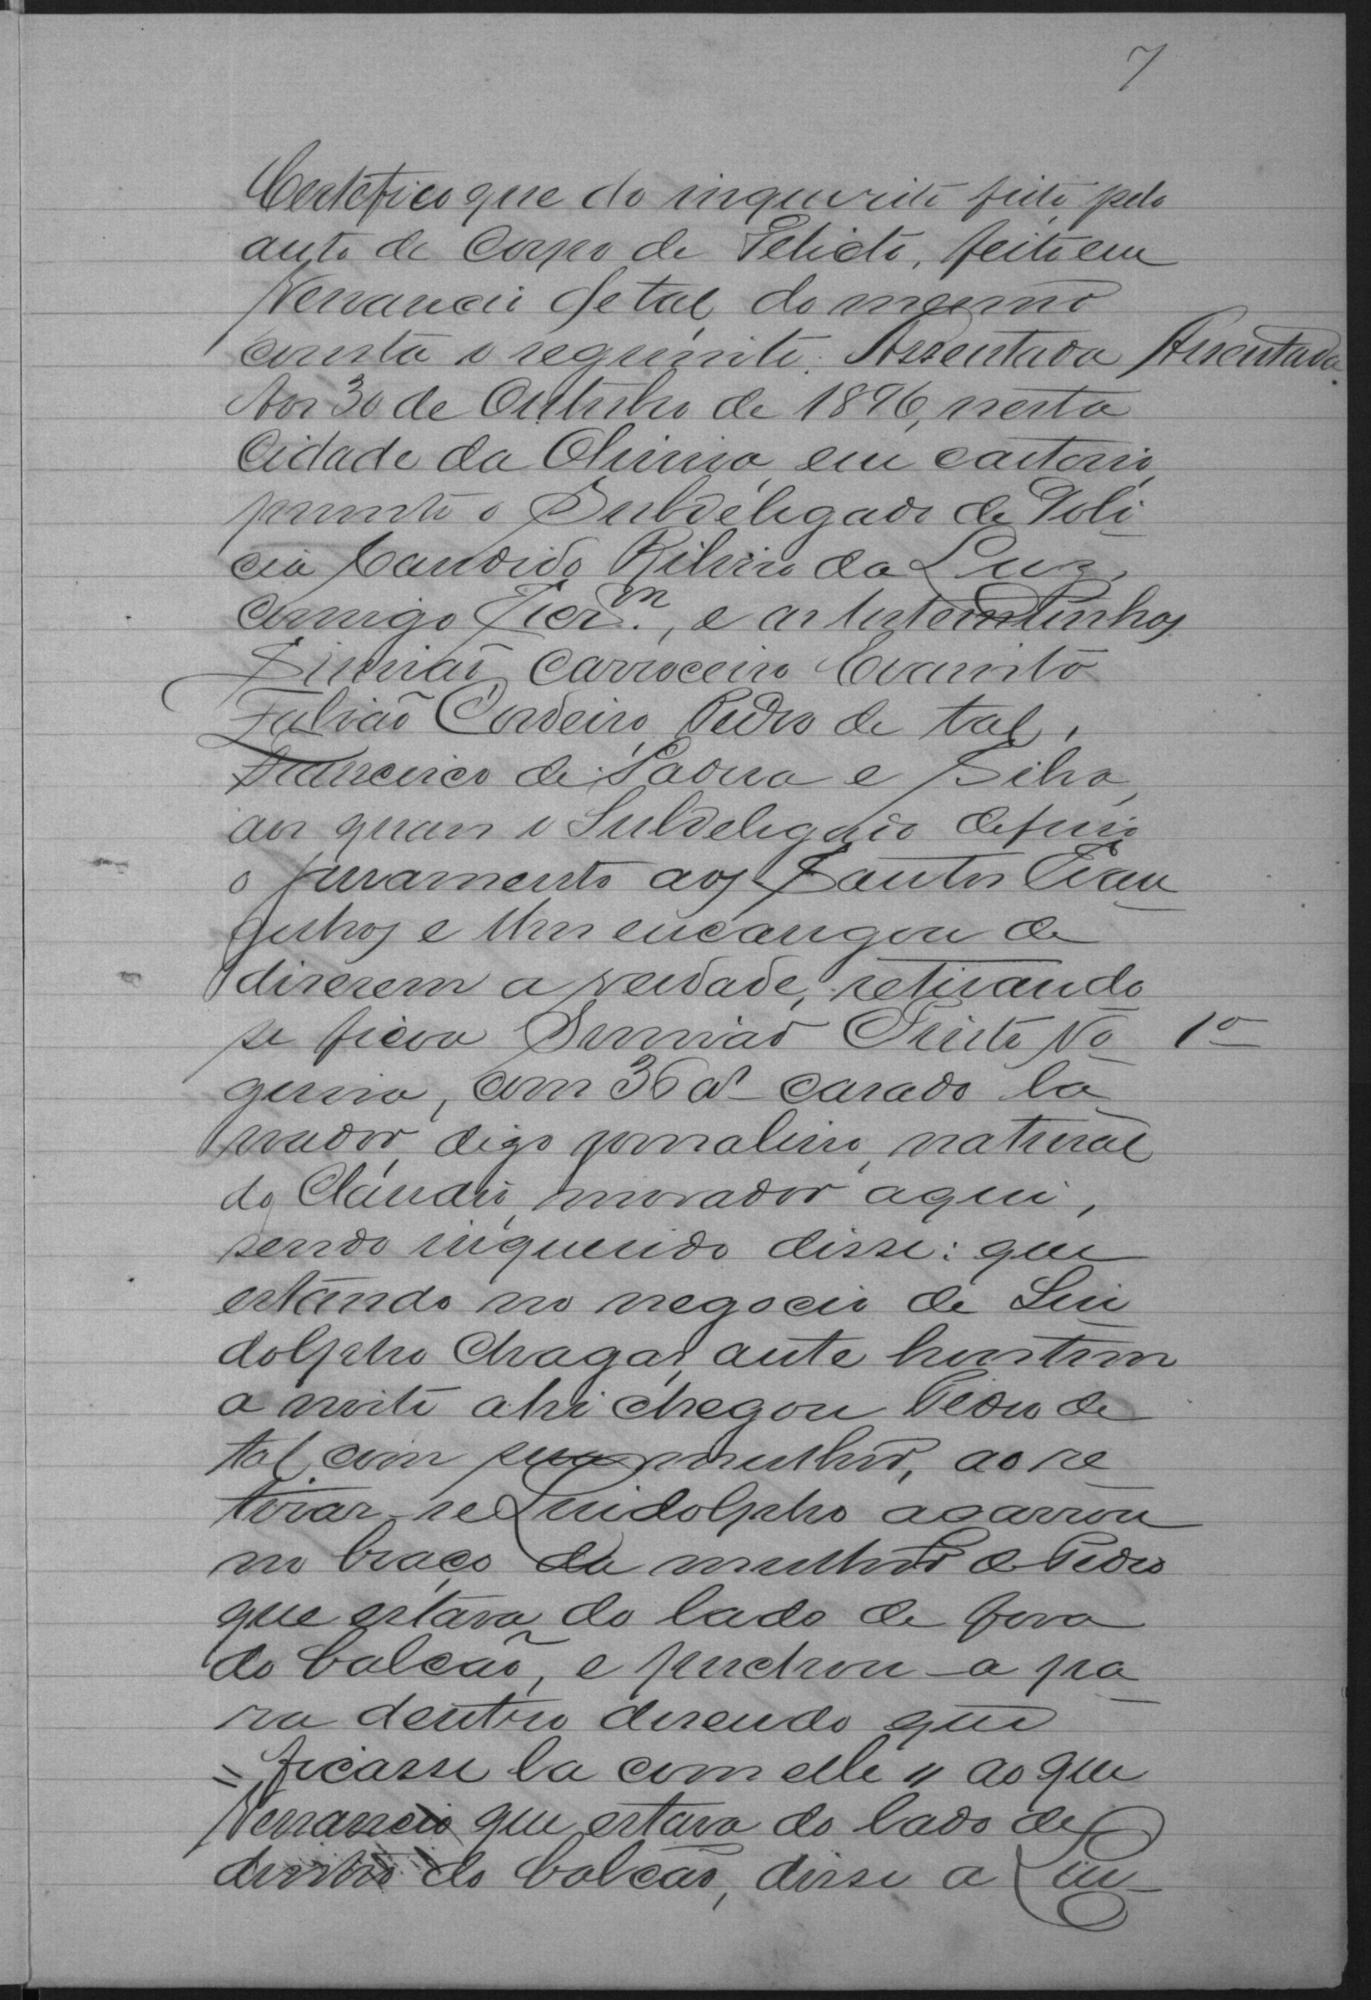 7
Certefico que do inquerito feito pelo
auto de Corpo de Delicto, feito em
Venancio de tal do mesmo
consta o seguinte. Assentada Assentada
Aos 30 de Outubro de 1896, nesta
Cidade da Oliveira em cartorio
perante o Subdelegado de Poli
cia Candido Ribeiro da Luz,
comigo Escr.m, e as testemunhas
Simião Carroceiro Evaristo
Fabião Cordeiro, Pedro de tal,
Francisco de Padua e Silva,
aos quaes o Subdelegado deferio
o juramento aos Santos Evan
gelhos e lhes encarregou de
diserem a verdade, retirando
se ficou Simião Leite No 1º
gueira, com 36 as casado la
vrador, digo jornaleiro, natural
do Claudio, morador aqui,
sendo inquerido disse: que
estando no negocio de Lin
dolpho Chagas, ante hontem
a noite ahi chegou Pedro de
tal com sua mulher, ao re
tirar-se Lindolpho agarrou
no braço da mulher de Pedro
que estava do lado de fora
do balcão, e puchou-a pa
ra dentro disendo que
" ficasse la com elle " ao que
Venancio que estava do lado de
dentro do balcão, disse a Lin